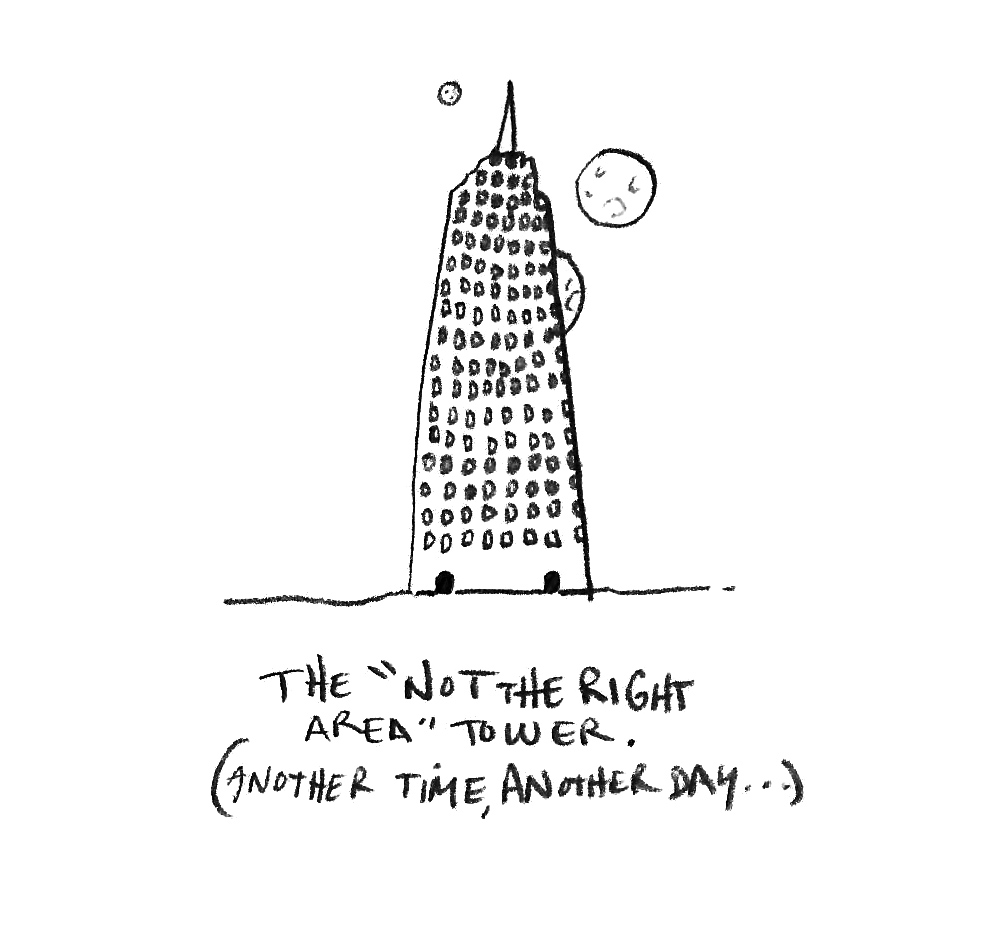 THE "NOT THE RIGHT
AREA" TOWER.
(ANOTHER TIME, ANOTHER DAY...)